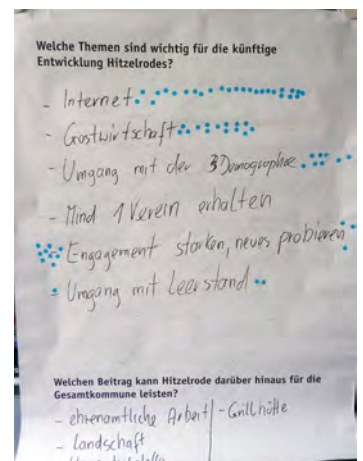 Welche Themen sind wichtig für die künftige
Entwicklung Hitzelrodes?
- Internet
- Gastwirtschaft
- Umgang mit der Demographie
- Mind 1 Verein erhalten
Engagement stärken, neues probieren
- Umgang mit Leerstand
Welchen Beitrag kann Hitzelrode darüber hinaus für die
Gesamtkommune leisten?
- ehrenamtliche Arbeit | - Grillhütte
- Landschaft